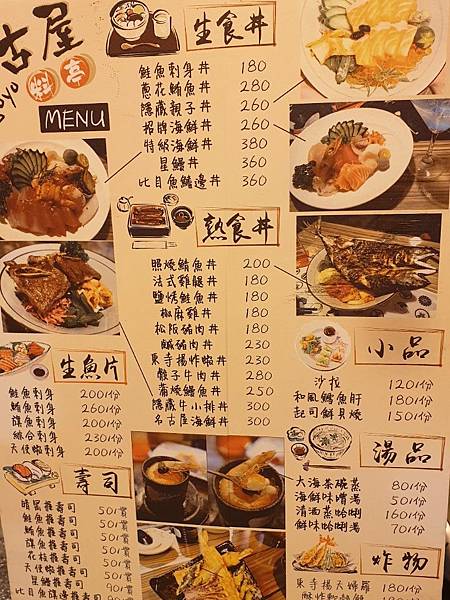 古屋
料亭
MENU
生食丼
鮭魚刺身丼 180
蔥花鮪魚丼 280
隱藏親子丼 260
招牌海鮮丼 260
特郎海鮮丼 380
星鰻丼 360
比目魚鰭邊丼 360
熟食丼
照燒鯖魚丼 200
法式雞腿丼 180
鹽烤鮭魚丼 180
椒麻雞丼 180
松阪豬肉丼 180
鹹豬肉丼 180
東寺揚炸蝦丼 230
骰子牛肉丼 280
蒲燒鰻魚丼 250
隱藏牛小排丼 300
名古屋海鮮丼 300
生魚片
鮭魚刺身 200/份
鮪魚刺身 260/份
旗魚刺身 200/份
綜合刺身 230/份
天使蝦刺身 200/份
壽司
鮭魚握壽司 50/貫
鮪魚握壽司 50/貫
旗魚握壽司
花枝握壽司
天使蝦握壽司
星鰻握壽司
比目魚鰭邊握壽司
小品
沙拉 120/份
和風鱈魚肝 180/份
起司鮮貝燒 150/份
湯品
大海茶碗蒸 80/份
海鮮味噌湯 50/份
清酒蒸蛤蜊 160/份
鮮味蛤蜊湯 70/份
炸物
東寺揚天婦羅 180/份